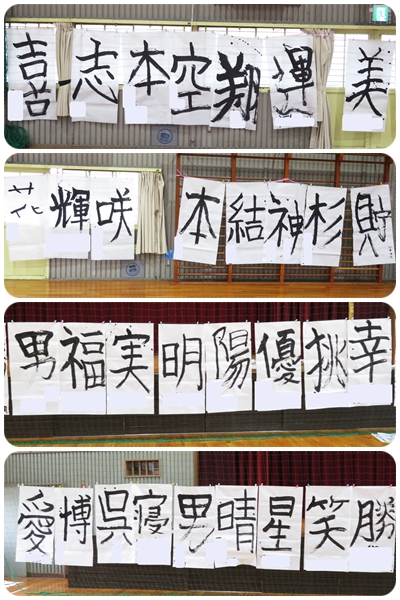 喜志本空翔運美
花輝咲本結神杉貯
男福実明陽優挑幸
愛博呉寝男晴星笑勝